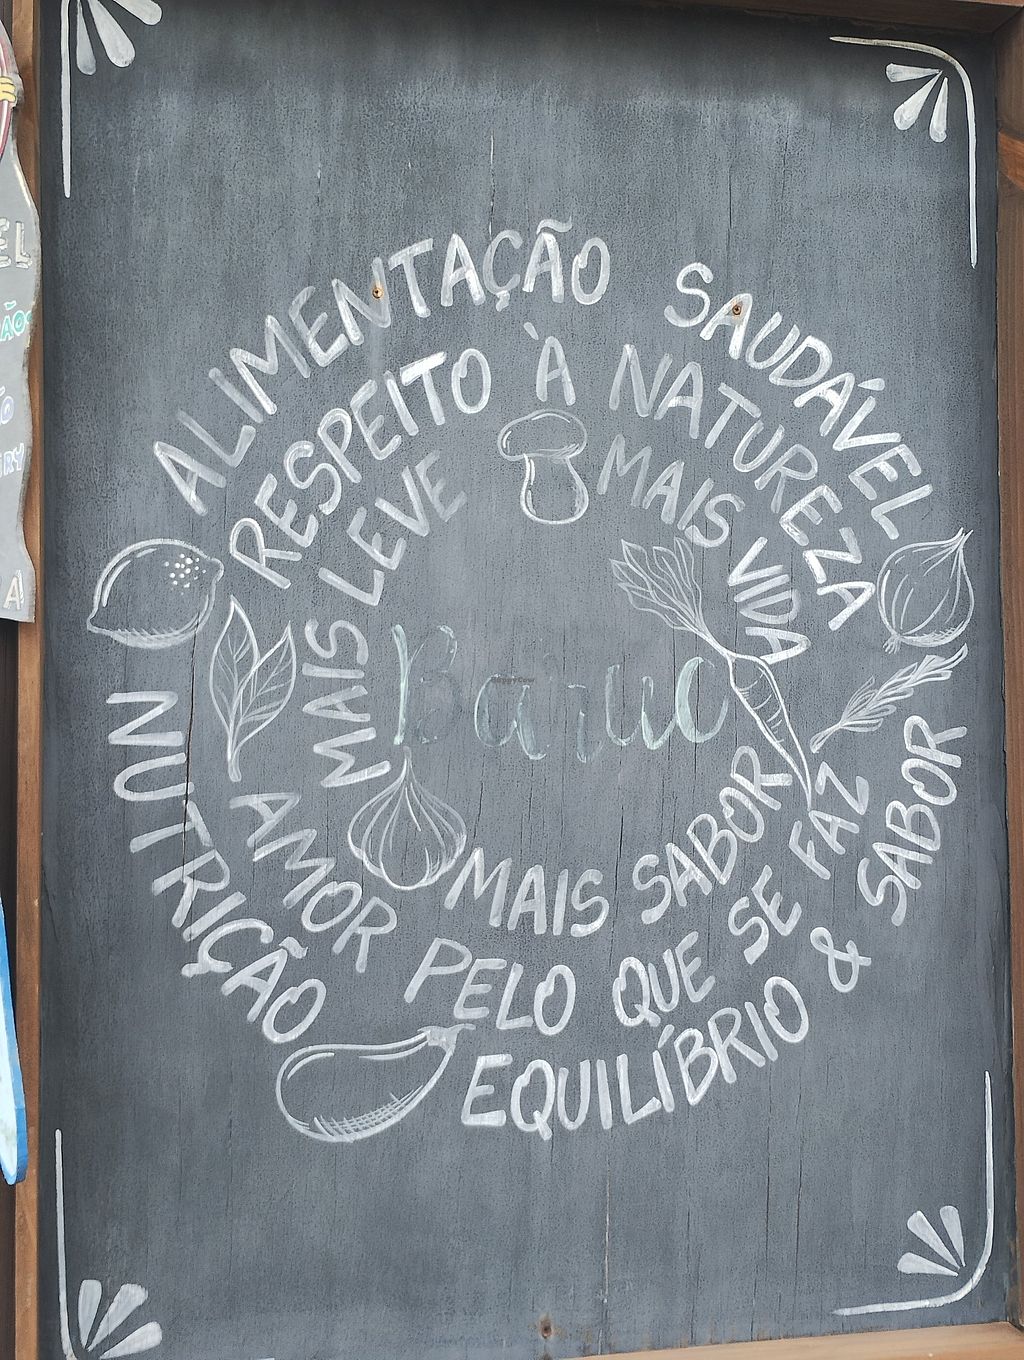 ALIMENTAÇÃO SAUDÁVEL
NUTRIÇÃO
EQUILÍBRIO & SABOR
RESPEITO À NATUREZA
AMOR PELO QUE SE FAZ
MAIS LEVE
MAIS VIDA
MAIS SABOR
Baruc